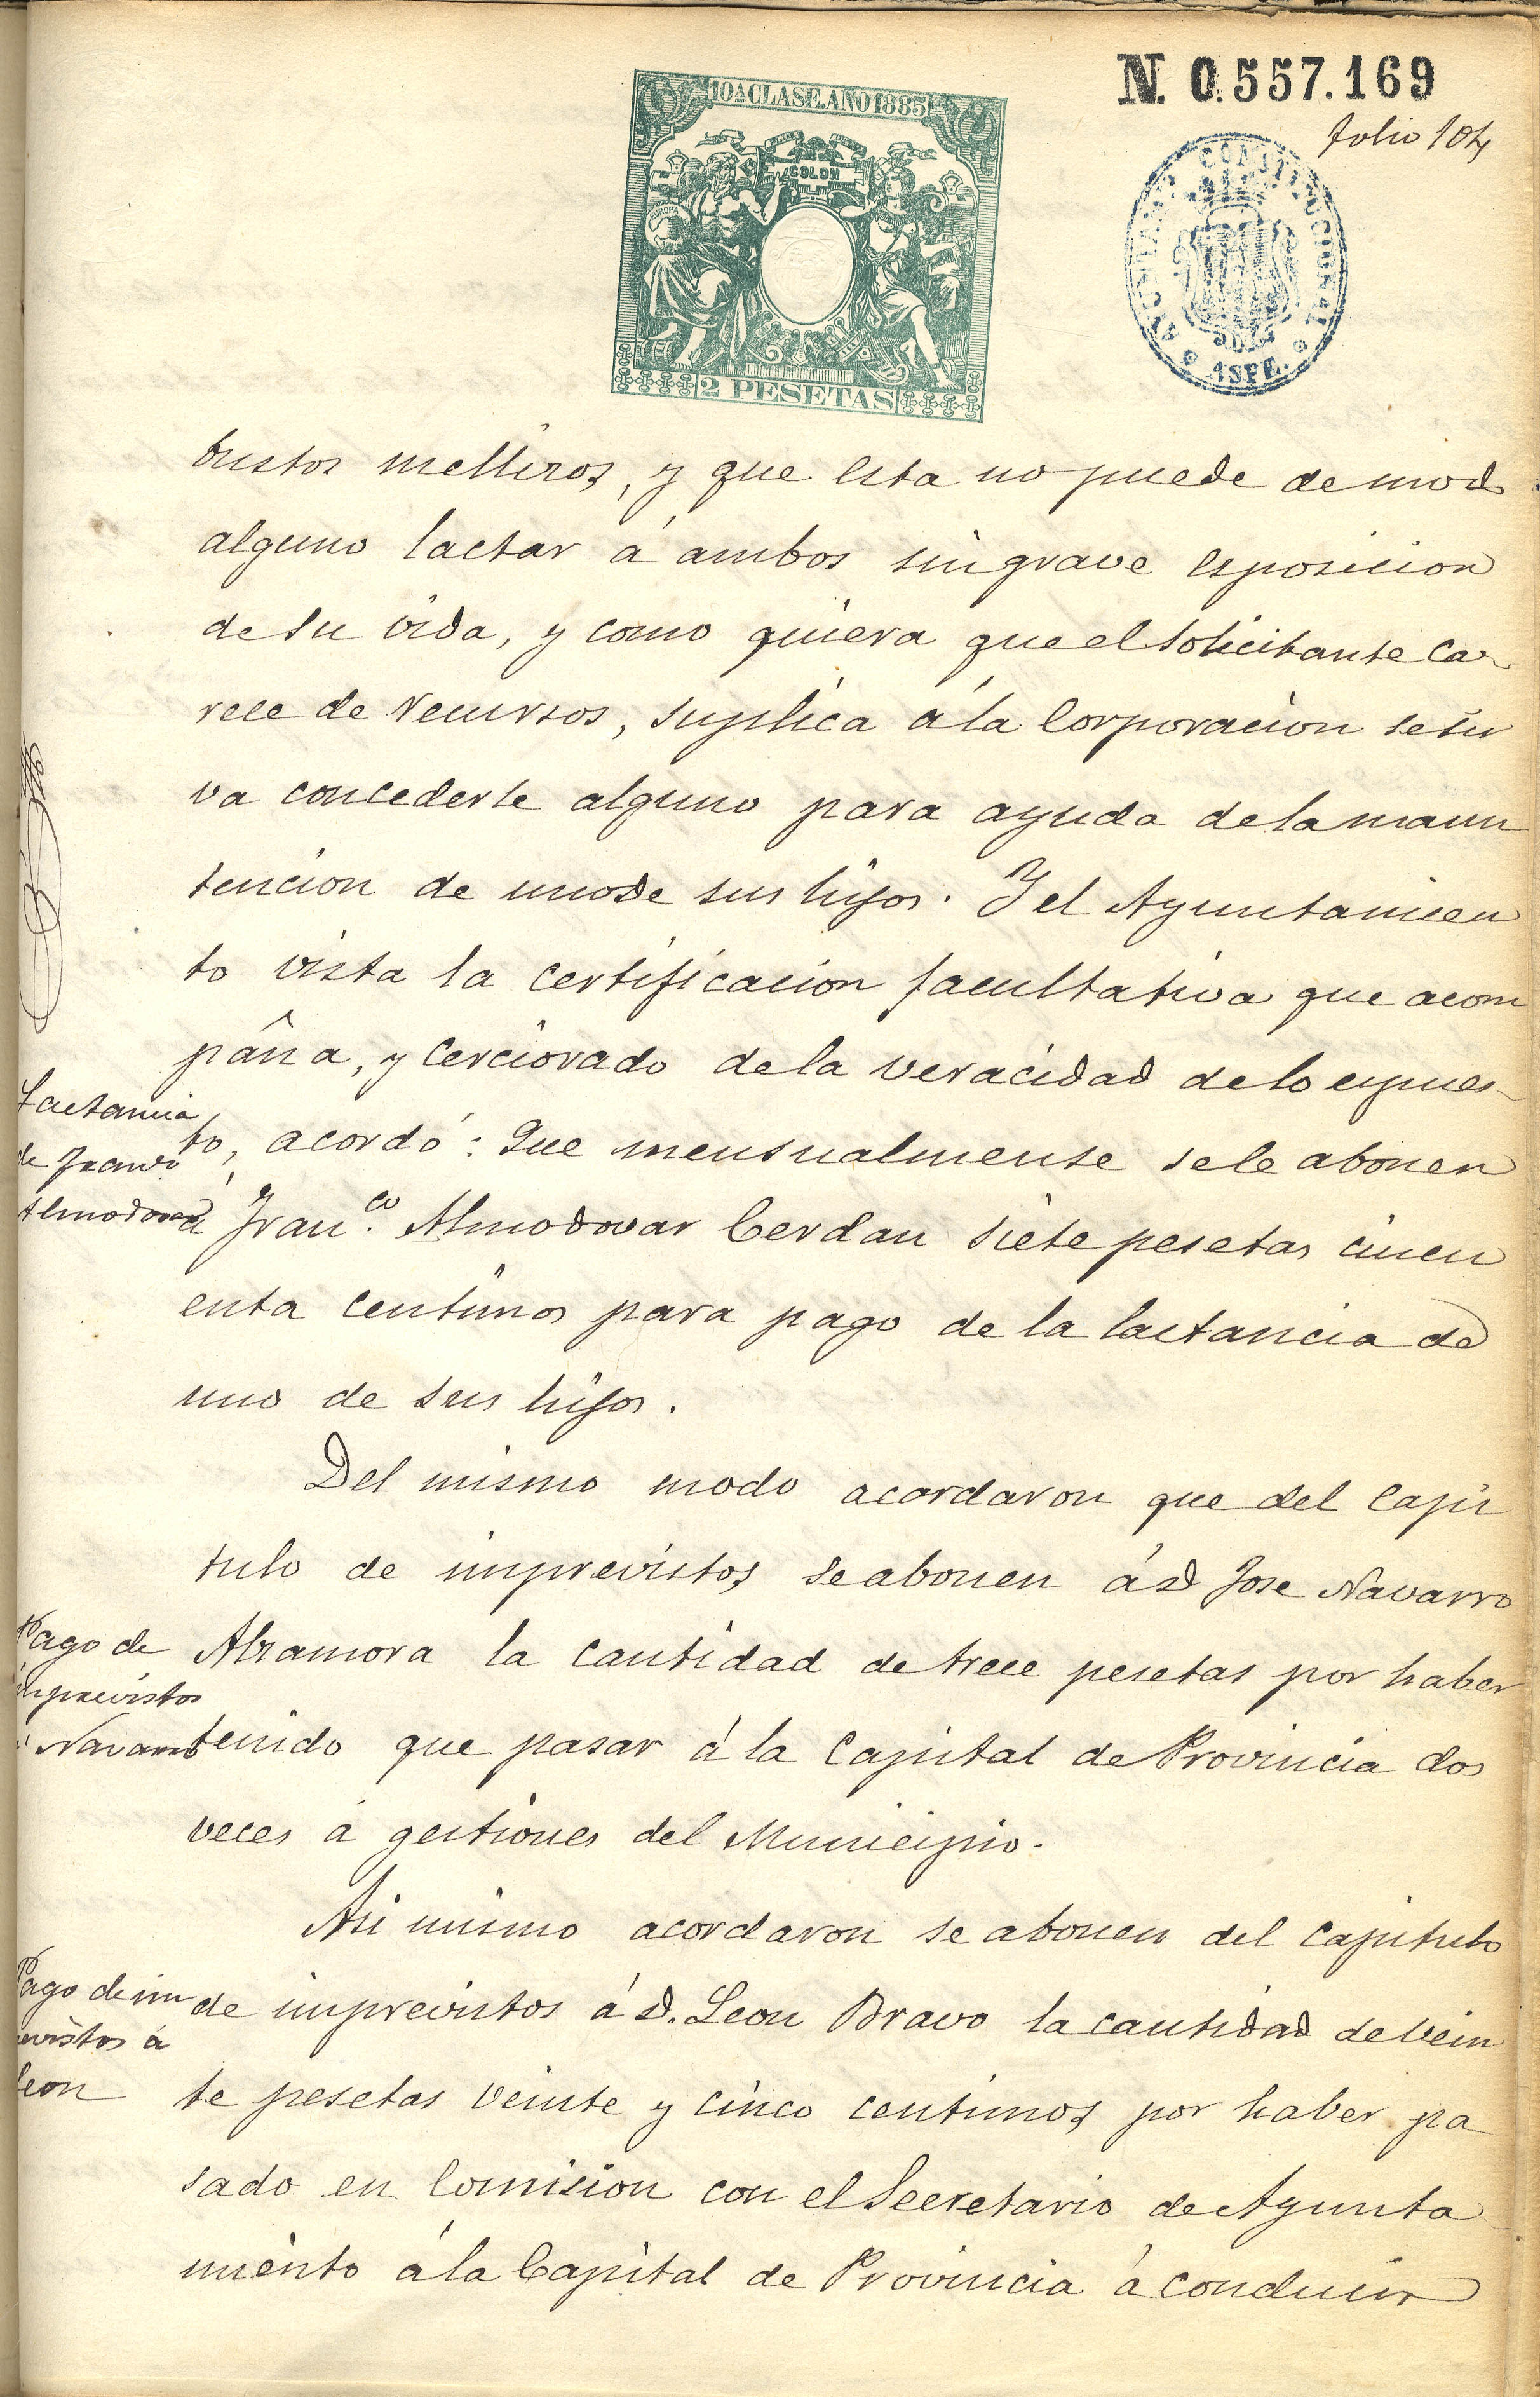 N. 0.557.169
folio 104
10ª CLASE. AÑO 1885
COLON
EUROPA
2 PESETAS
AYUNTAMIENTO CONSTITUCIONAL
DE
ASPE.
bustos mellizos, y que esta no puede de modo
alguno lactar á ambos sin grave esposicion
de su vida, y como quiera que el solicitante ca-
rece de recursos, suplica á la Corporacion se sir
va concederle alguno para ayuda de la manu
tencion de uno de sus hijos. Y el Ayuntamien
to vista la certificacion facultativa que acom
paña, y cerciorado de la veracidad de lo espues-
Lactancia
de Franco
Almodovar
to, acordó: Que mensualmente se le abonen
á Franco. Almodovar Cerdan siete pesetas cincu
enta centimos para pago de la lactancia de
uno de sus hijos.
Del mismo modo acordaron que del capi
tulo de imprevistos se abonen á D Jose Navarro
Pago de
imprevistos
á Navarro
Alzamora la cantidad de trece pesetas por haber
tenido que pasar á la Capital de Provincia dos
veces á gestiones del Municipio.
Asi mismo acordaron se abonen del capitulo
Pago de im
previstos á
Leon
de imprevistos á D. Leon Bravo la cantidad de vein
te pesetas veinte y cinco centimos por haber pa
sado en Comision con el Secretario de Ayunta
miento á la Capital de Provincia á conducir